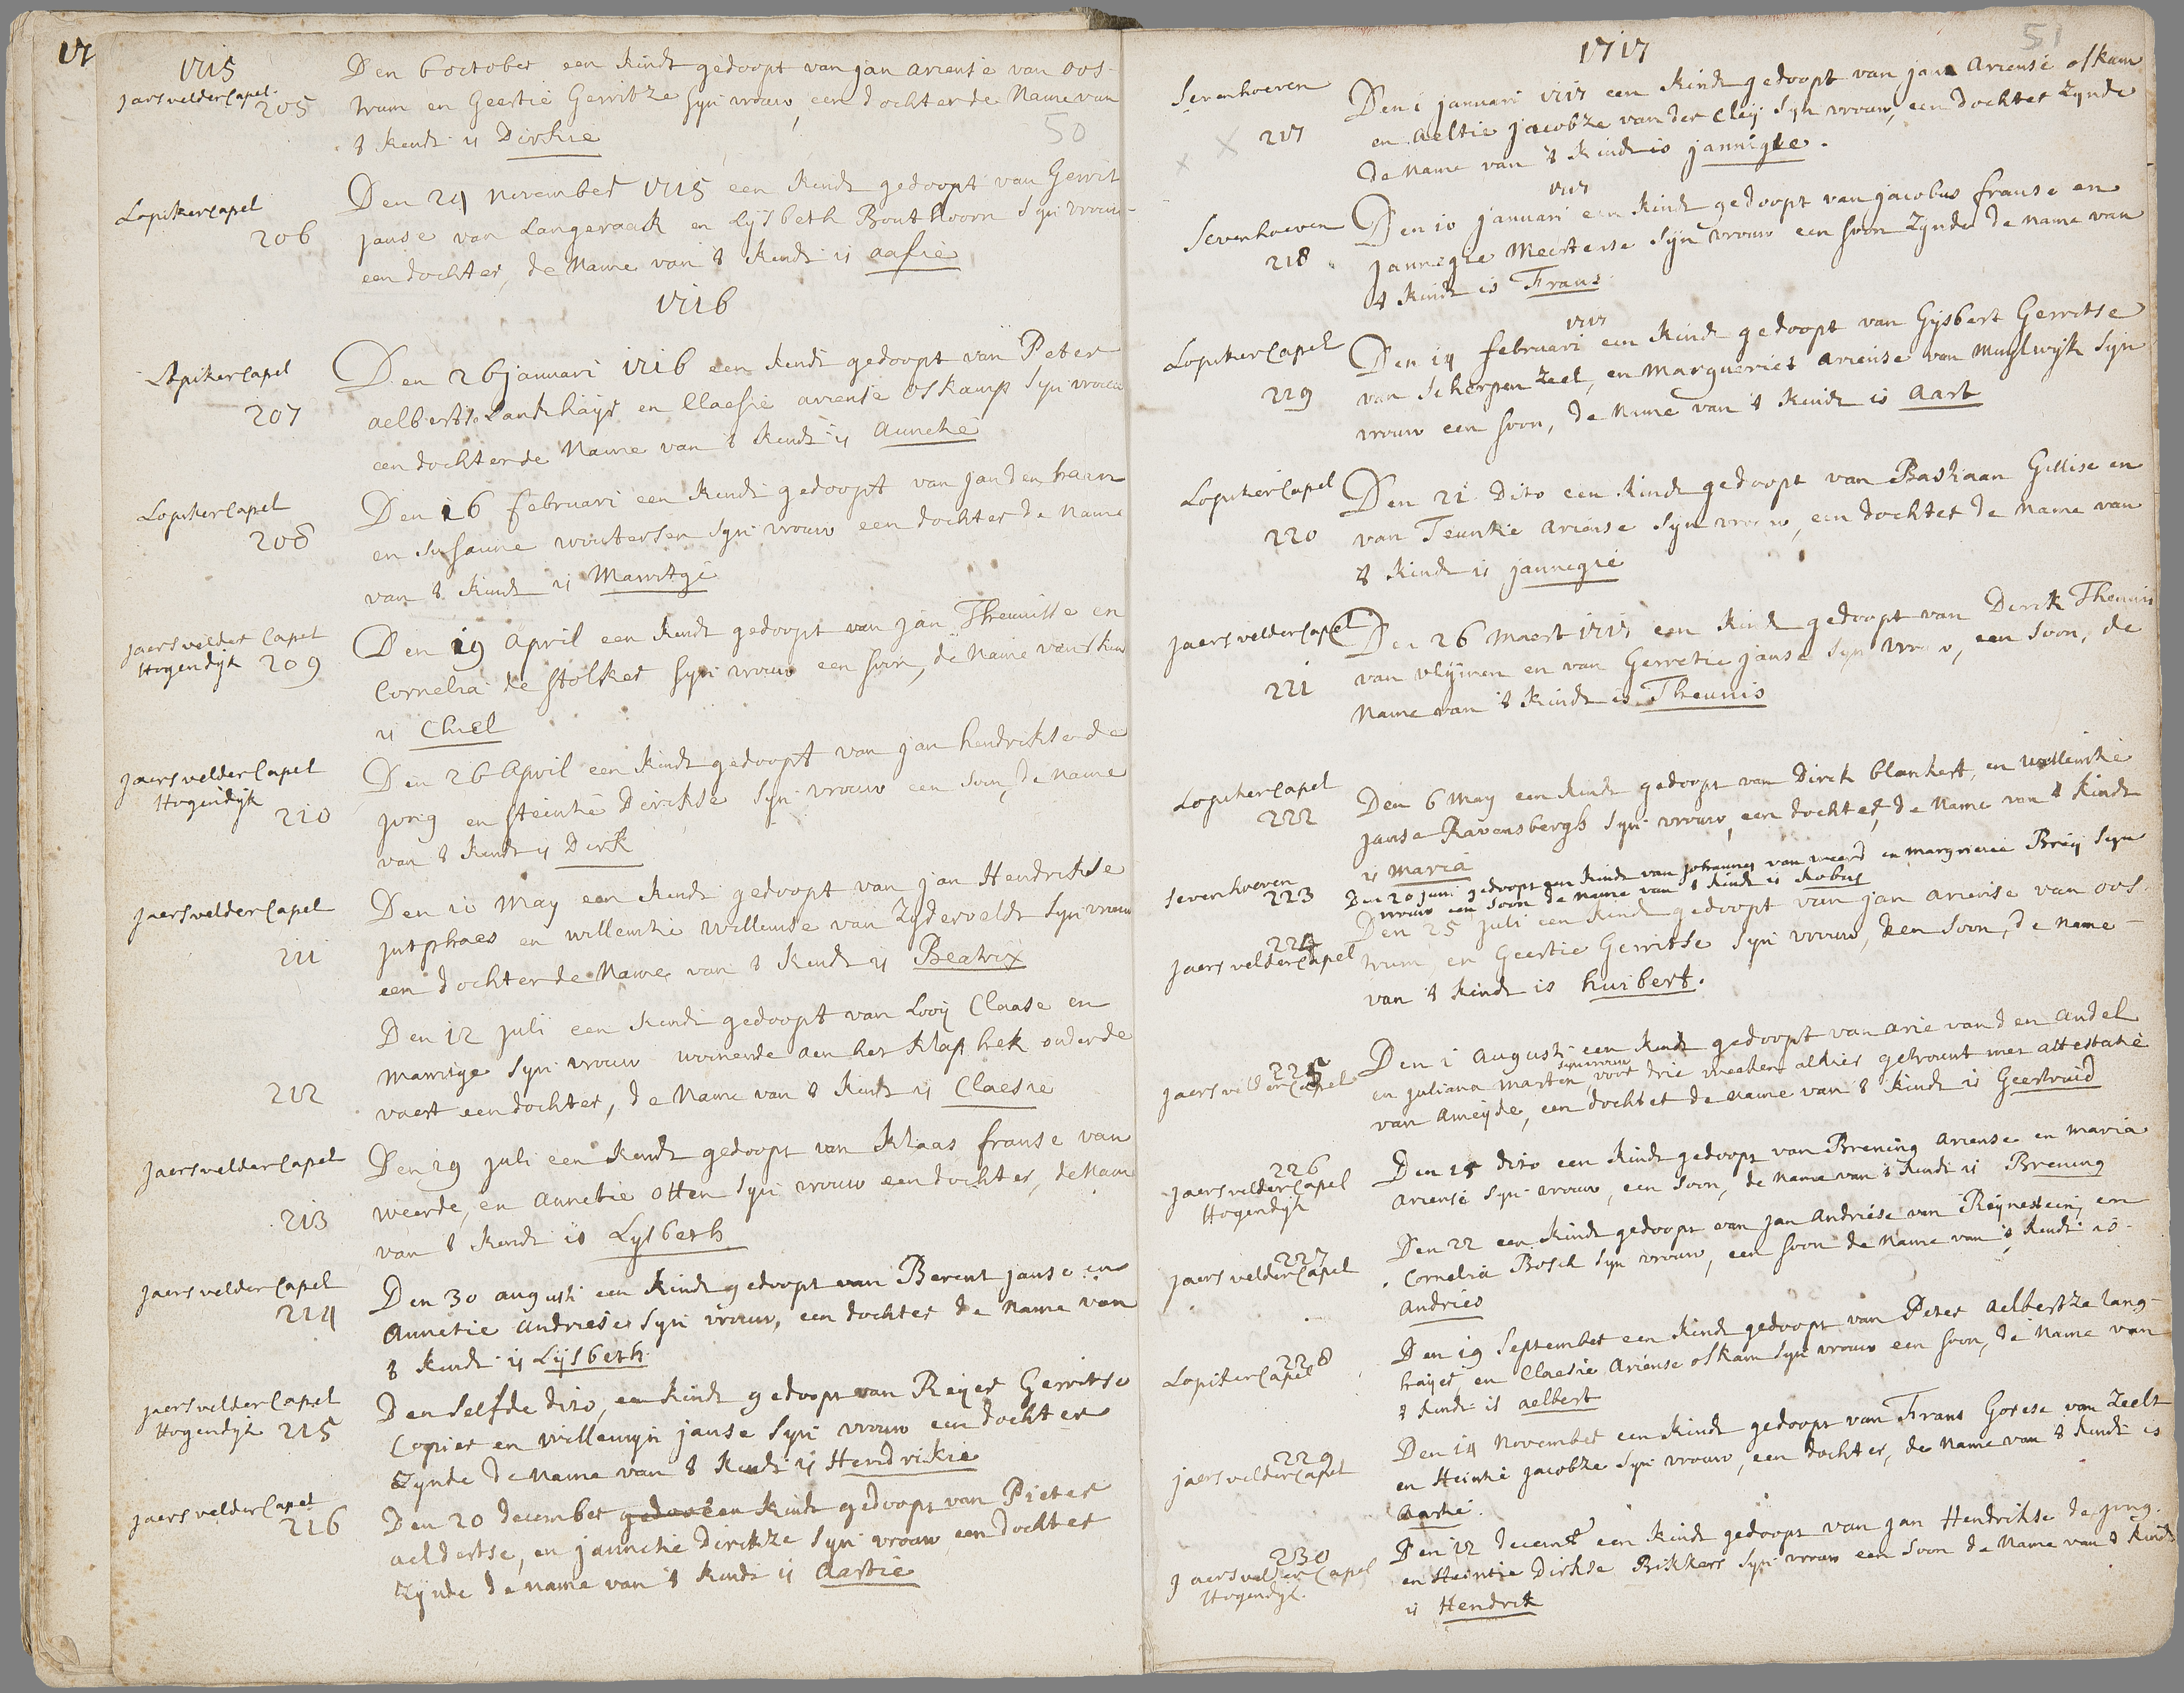 17
1715
Jaersvelder Capel.
205
Den 6 october een kindt gedoopt van jan ariense van oos-
trum en Geertie Gerritze syn vrouw, een dochter de Name van
't kindt is Dirkie
50
Lopiker Capel
206
Den 24 november 1715 een kindt gedoopt van Gerrit
janse van Langeraack en Lysbeth Bouthoorn syn vrouw
een dochter, de Name van 't kindt is aafie
1716
Lopiker Capel
207
Den 26 januari 1716 een kindt gedoopt van Peter
aelbertse Landthayer en Claesie ariense oskamp syn vrouw
een dochter de Name van 't kindt is Anneke
Lopiker Capel
208
Den 16 februari een kindt gedoopt van jan den haen
en susanne woutersen syn vrouw een dochter de Name
van 't kindt is Marritge
Jaersvelder Capel
Hogendyk 209
Den 19 April een kindt gedoopt van jan Theunisse en
Cornelia de stolker syn vrouw een soon, de Name van 't kin
is Chiel
Jaersvelder Capel
Hogendyk
210
Den 26 April een kindt gedoopt van jan hendrickse de
jong en steintie Dirckse syn vrouw een soon, de Name
van 't kindt is Dirk
Jaersvelder Capel
211
Den 10 May een kindt gedoopt van jan Hendrickse
jutphaes en willemtie willemse van Zyderveldt syn vrouw
een dochter de Name van 't kindt is Beatrix
212
Den 12 juli een kindt gedoopt van Looy Claase en
Marritge syn vrouw woonende aen het klaphek onder de
vaert een dochter, de Name van 't kindt is Claesie
Jaersvelder Capel
213
Den 19 juli een kindt gedoopt van Klaas franse van
weerde, en annetie otten syn vrouw een dochter, de Name
van 't kindt is Lysbeth
Jaersvelder Capel
214
Den 30 augusti een kindt gedoopt van Berent janse en
Annetie andriese syn vrouw, een dochter de Name van
't kindt is Lysbeth
Jaersvelder Capel
Hogendyk 215
Den selfde dito, een kindt gedoopt van Reyer Gerritse
Copier en willemyn janse syn vrouw een dochter
zynde de Name van 't kindt is Hendrikie
Jaersvelder Capel
216
Den 20 december een kindt gedoopt van Pieter
aeldertse, en jannetie Dirckze syn vrouw een dochter
zynde de name van 't kindt is Aartie
51
1717
Sevenhoeven
217
Den 1 januari 1717 een kindt gedoopt van jan Ariense oskam
en Aeltie jacobze van der Cley syn vrouw, een dochter zynde
de Name van 't kindt is jannigke.
Sevenhoeven
218
1717
Den 10 januari een kindt gedoopt van jacobus franse en
jannegie Meertense syn vrouw een soon zynde de name van
't kindt is Frans
Lopiker Capel
229
1717
Den 14 februari een kindt gedoopt van Gysbert Gerritse
van Scherpenzeel, en Margueriet ariense van Muylwyk syn
vrouw een soon, de Name van 't kindt is Aart
Lopiker Capel
220
Den 21 dito een kindt gedoopt van Bastiaan Gillise en
van Teuntie Ariense syn vrouw, een dochter de Name van
't kindt is jannegie
Jaersvelder Capel
221
Den 26 Maert 1717 een kindt gedoopt van Dirck Theunis
van vlymen en van Gerretie janse syn vrouw, een soon, de
Name van 't kindt is Theunis
Lopiker Capel
222
Den 6 May een kindt gedoopt van Dirck Clankert, en willemtie
janse Ravensbergh syn vrouw, een dochter, de Name van 't kindt
is Maria
Sevenhoeven
223
Den 20 juni gedoopt een kindt van johannes van weerd en margrietie Brey syn
vrouw een soon de name van 't kindt is kobus
224
Jaersvelder Capel
Den 25 juli een kindt gedoopt van jan ariense van oos-
trum en Geertie Gerritse syn vrouw, een soon, de Name
van 't kindt is huibert.
225
Jaersvelder Capel
Den 1 Augusti een kindt gedoopt van arie van den Andel
en juliana marten syn vrouw voor drie weeken alhier getrouwt met attestatie
van Ameyde, een dochter de name van 't kindt is Geertruid
226
Jaersvelder Capel
Hogendyk
Den 15 dito een kindt gedoopt van Brening Ariense en Maria
Ariense syn vrouw, een soon, de Name van 't kindt is Brening
227
Jaersvelder Capel
Den 22 een kindt gedoopt van jan Andriese van Reynestein, en
Cornelia Bosch syn vrouw, een soon de Name van 't kindt is
Andries
228
Lopiker Capel
Den 19 September een kindt gedoopt van Peter Aelbertze lang-
hayer en Claesie Ariense oskam syn vrouw een soon, de Name van
't kindt is aelbert
229
Jaersvelder Capel
Den 14 November een kindt gedoopt van Frans Gorese van Zeelt
en Heintie jacobze syn vrouw, een dochter, de Name van 't kindt is
Aartie.
230
Jaersvelder Capel
Hogendyk.
Den 12 decemr een kindt gedoopt van jan Hendrikse de jong.
en Heintie Dirkse Rikkers syn vrouw een soon de Name van 't kindt
is Hendrik